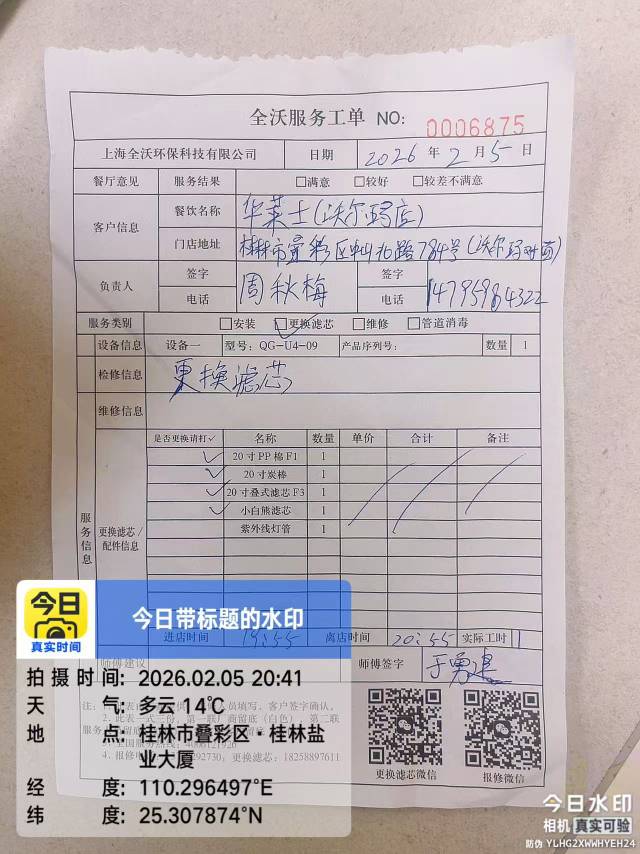 全沃服务工单 NO: 0006875
上海全沃环保科技有限公司 日期 2026年2月5日
餐厅意见 服务结果 □满意 □较好 □较差不满意
客户信息 餐饮名称 华莱士(沃尔玛店)
门店地址 桂林市叠彩区中山北路784号(沃尔玛对面)
负责人 签字 周秋梅 签字
电话 电话 14795984322
服务类别 □安装 □更换滤芯 □维修 □管道消毒
设备信息 设备一 型号: QG-U4-09 产品序列号: 数量 1
检修信息 更换滤芯
维修信息
服务信息 更换滤芯/配件信息
是否更换请打✓ 名称 数量 单价 合计 备注
✓ 20寸PP棉F1 1
✓ 20寸炭棒 1
✓ 20寸叠式滤芯F3 1
✓ 小白熊滤芯 1
紫外线灯管 1
进店时间 19:55 离店时间 20:55 实际工时 1
师傅建议 师傅签字
更换滤芯微信 报修微信
今日
真实时间
今日带标题的水印
拍摄时间: 2026.02.05 20:41
天气: 多云 14℃
地点: 桂林市叠彩区·桂林盐业大厦
经度: 110.296497°E
纬度: 25.307874°N
更换滤芯: 18258897611
今日水印
相机 真实可验
防伪 YLHG2XWWHYEH24